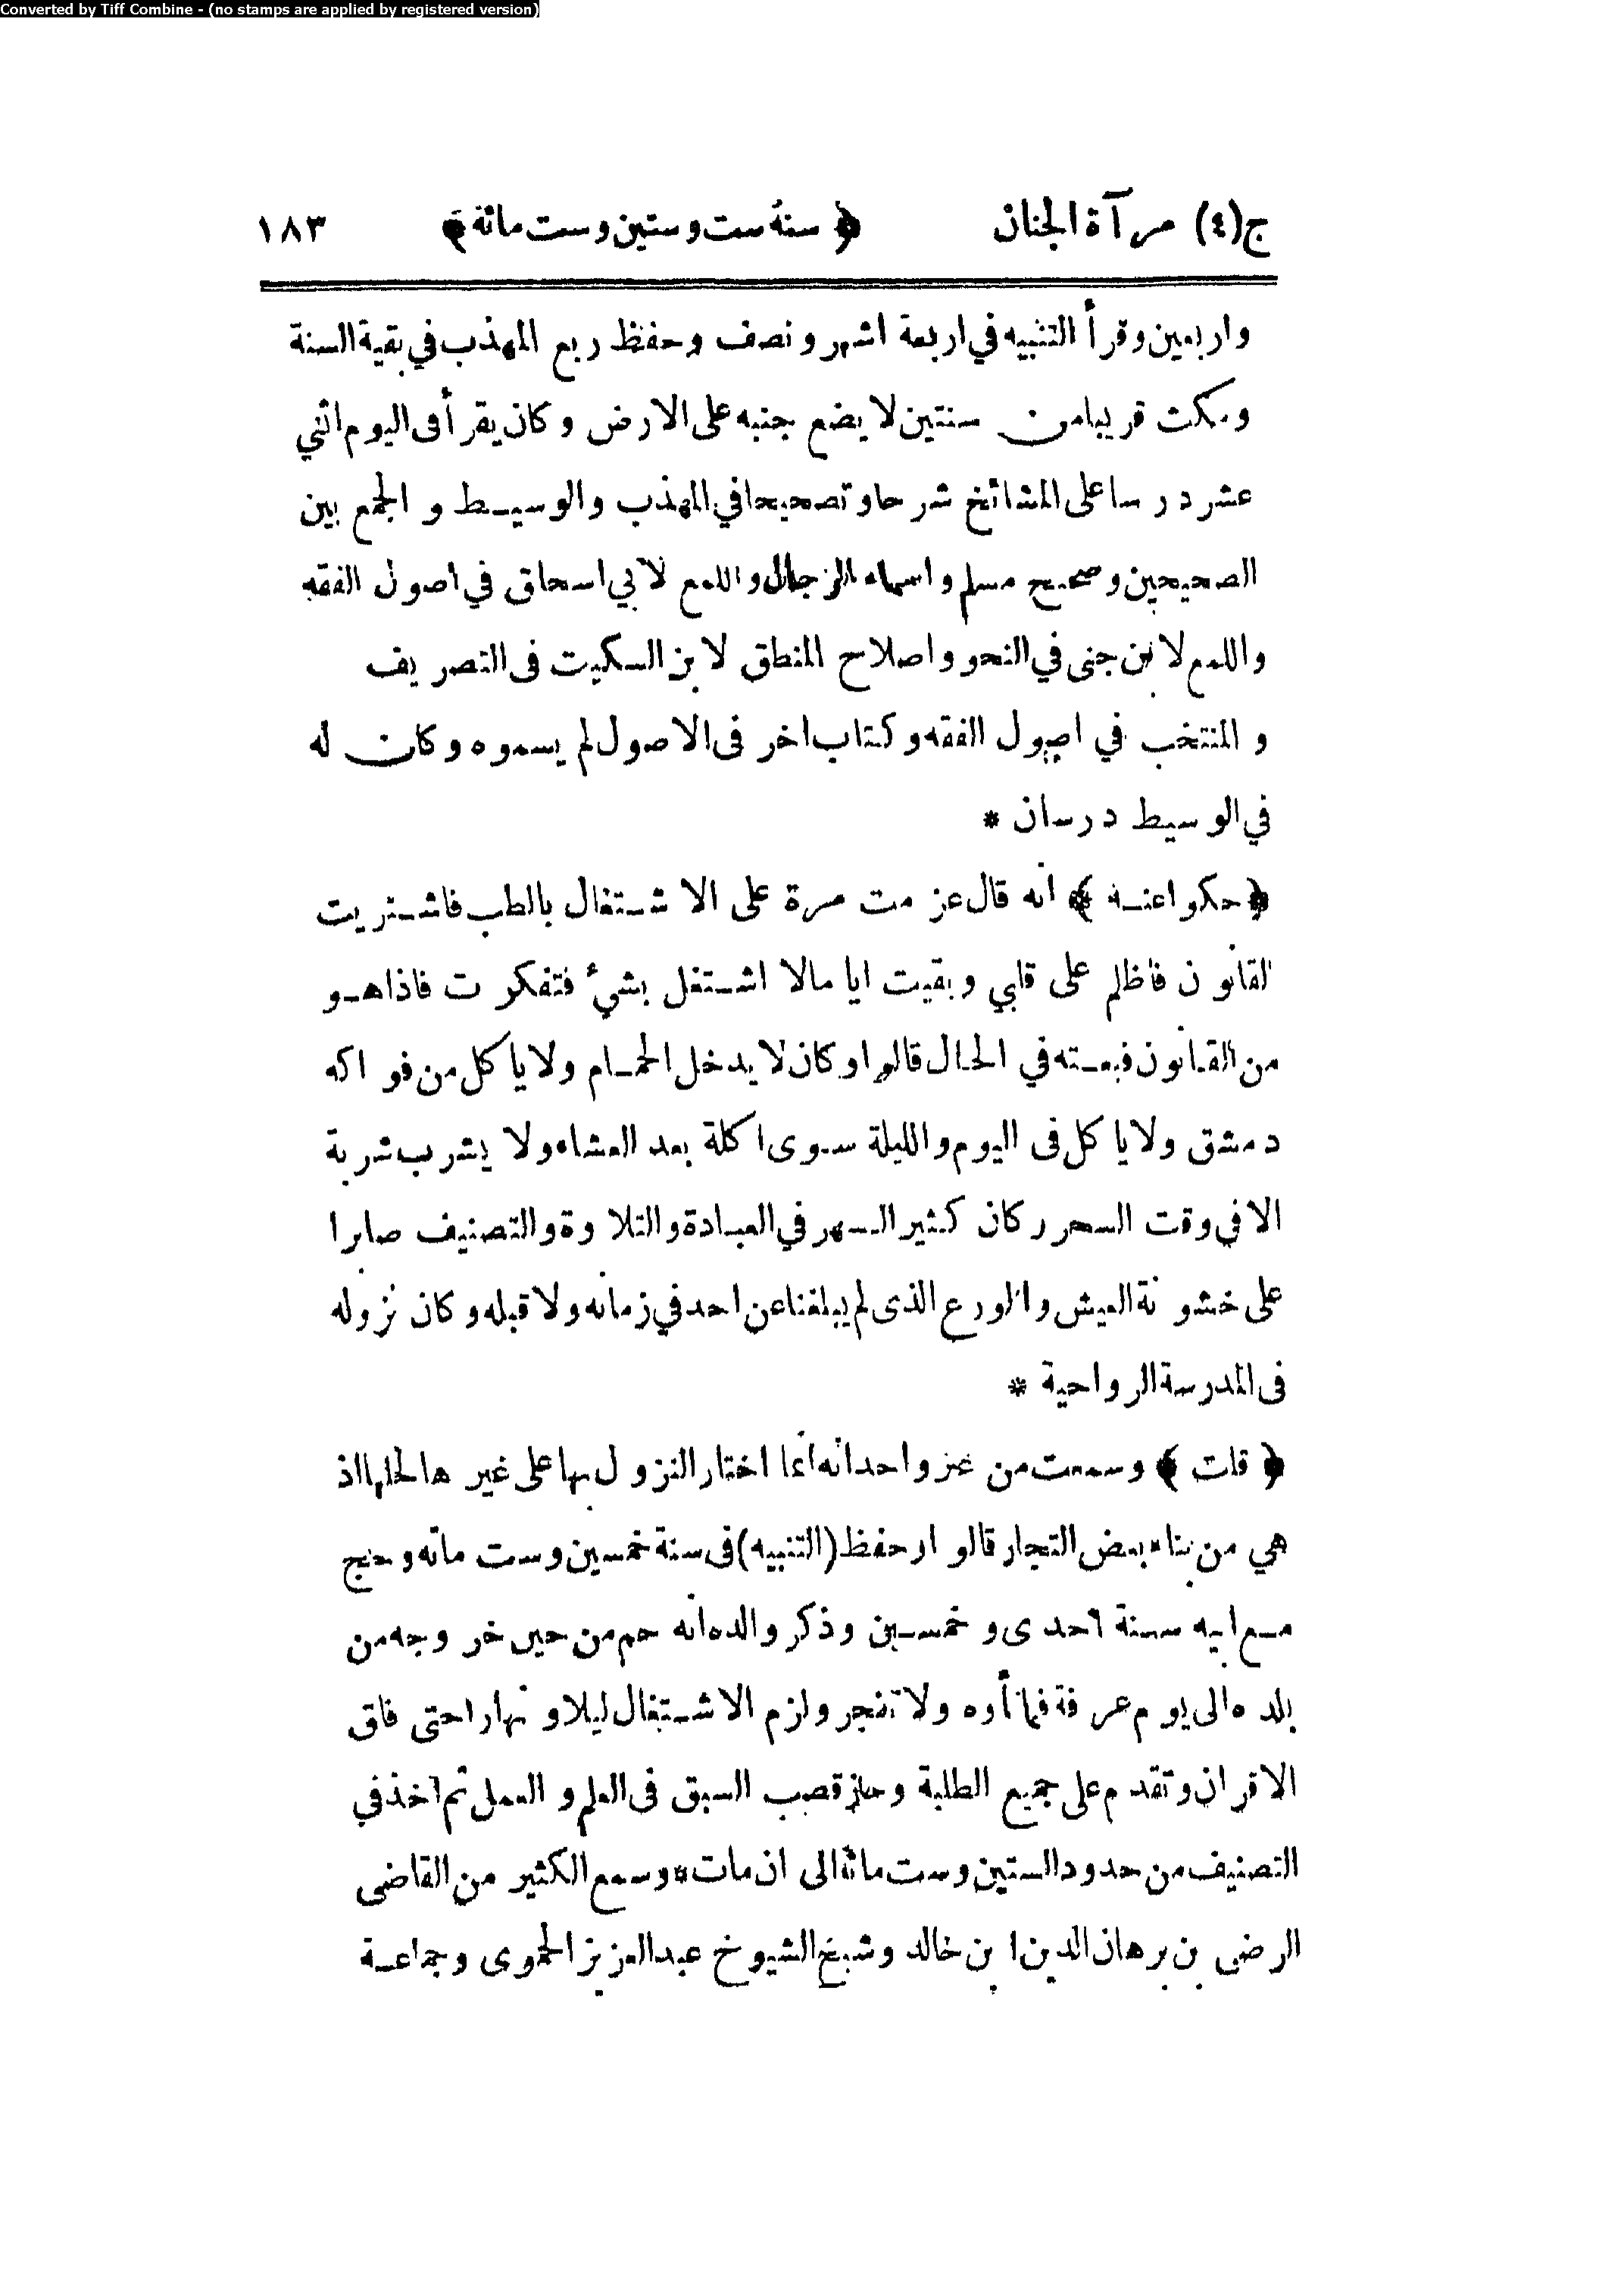 Converted by Tiff Combine - (no stamps are applied by registered version)
ج(٤) مرآة الجنان ﴿ سنة ست وستين وست مائة ﴾ ١٨٣
واربعين وقرأ التنبيه في اربعة اشهر و نصف وحفظ ربع المهذب في بقية السنة
ومكث قريبا من سنتين لا يضع جنبه على الارض وكان يقرأ فى اليوم اثني
عشر درسا على المشائخ شرحا وتصحيحا في المهذب والوسيط و الجمع بين
الصحيحين وصحيح مسلم واسماء الرجال واللمع لابي اسحاق في اصول الفقه
واللمع لابن جنى في النحو واصلاح المنطق لابن السكيت فى التصريف
و المنتخب في اصول الفقه وكتاب اخر فى الاصول لم يسموه وكان له
في الوسيط درسان *
﴿ حكوا عنه ﴾ انه قال عزمت مرة على الاشتغال بالطب فاشتريت
القانون فاظلم على قلبي وبقيت اياما لا اشتغل بشئ فتفكرت فاذا هو
من القانون فبعته في الحال قالوا وكان لا يدخل الحمام ولا ياكل من فواكه
دمشق ولا ياكل فى اليوم والليلة سوى اكلة بعد العشاء ولا يشرب شربة
الا في وقت السحر وكان كثير السهر في العبادة والتلاوة والتصنيف صابرا
على خشونة العيش والورع الذى لم يبلغنا عن احد في زمانه ولا قبله وكان نزوله
فى المدرسة الرواحية *
﴿ قلت ﴾ وسمعت من غير واحد انه انما اختار النزول بها على غيرها لحلها اذ
هي من بناء بعض التجار قالوا وحفظ (التنبيه) فى سنة خمسين وست مائه وحج
مع ابيه سنة احدى و خمسين وذكر والده انه حم من حين خروجه من
بلده الى يوم عرفة فما تأوه ولا تضجر ولزم الاشتغال ليلا و نهارا حتى فاق
الاقران وتقدم على جميع الطلبة وحاز قصب السبق فى العلم و العمل ثم اخذ في
التصنيف من حدود الستين وست مائة الى ان مات * وسمع الكثير من القاضى
الرضى بن برهان الدين ابن خالد وشيخ الشيوخ عبد العزيز الحموى وجماعة